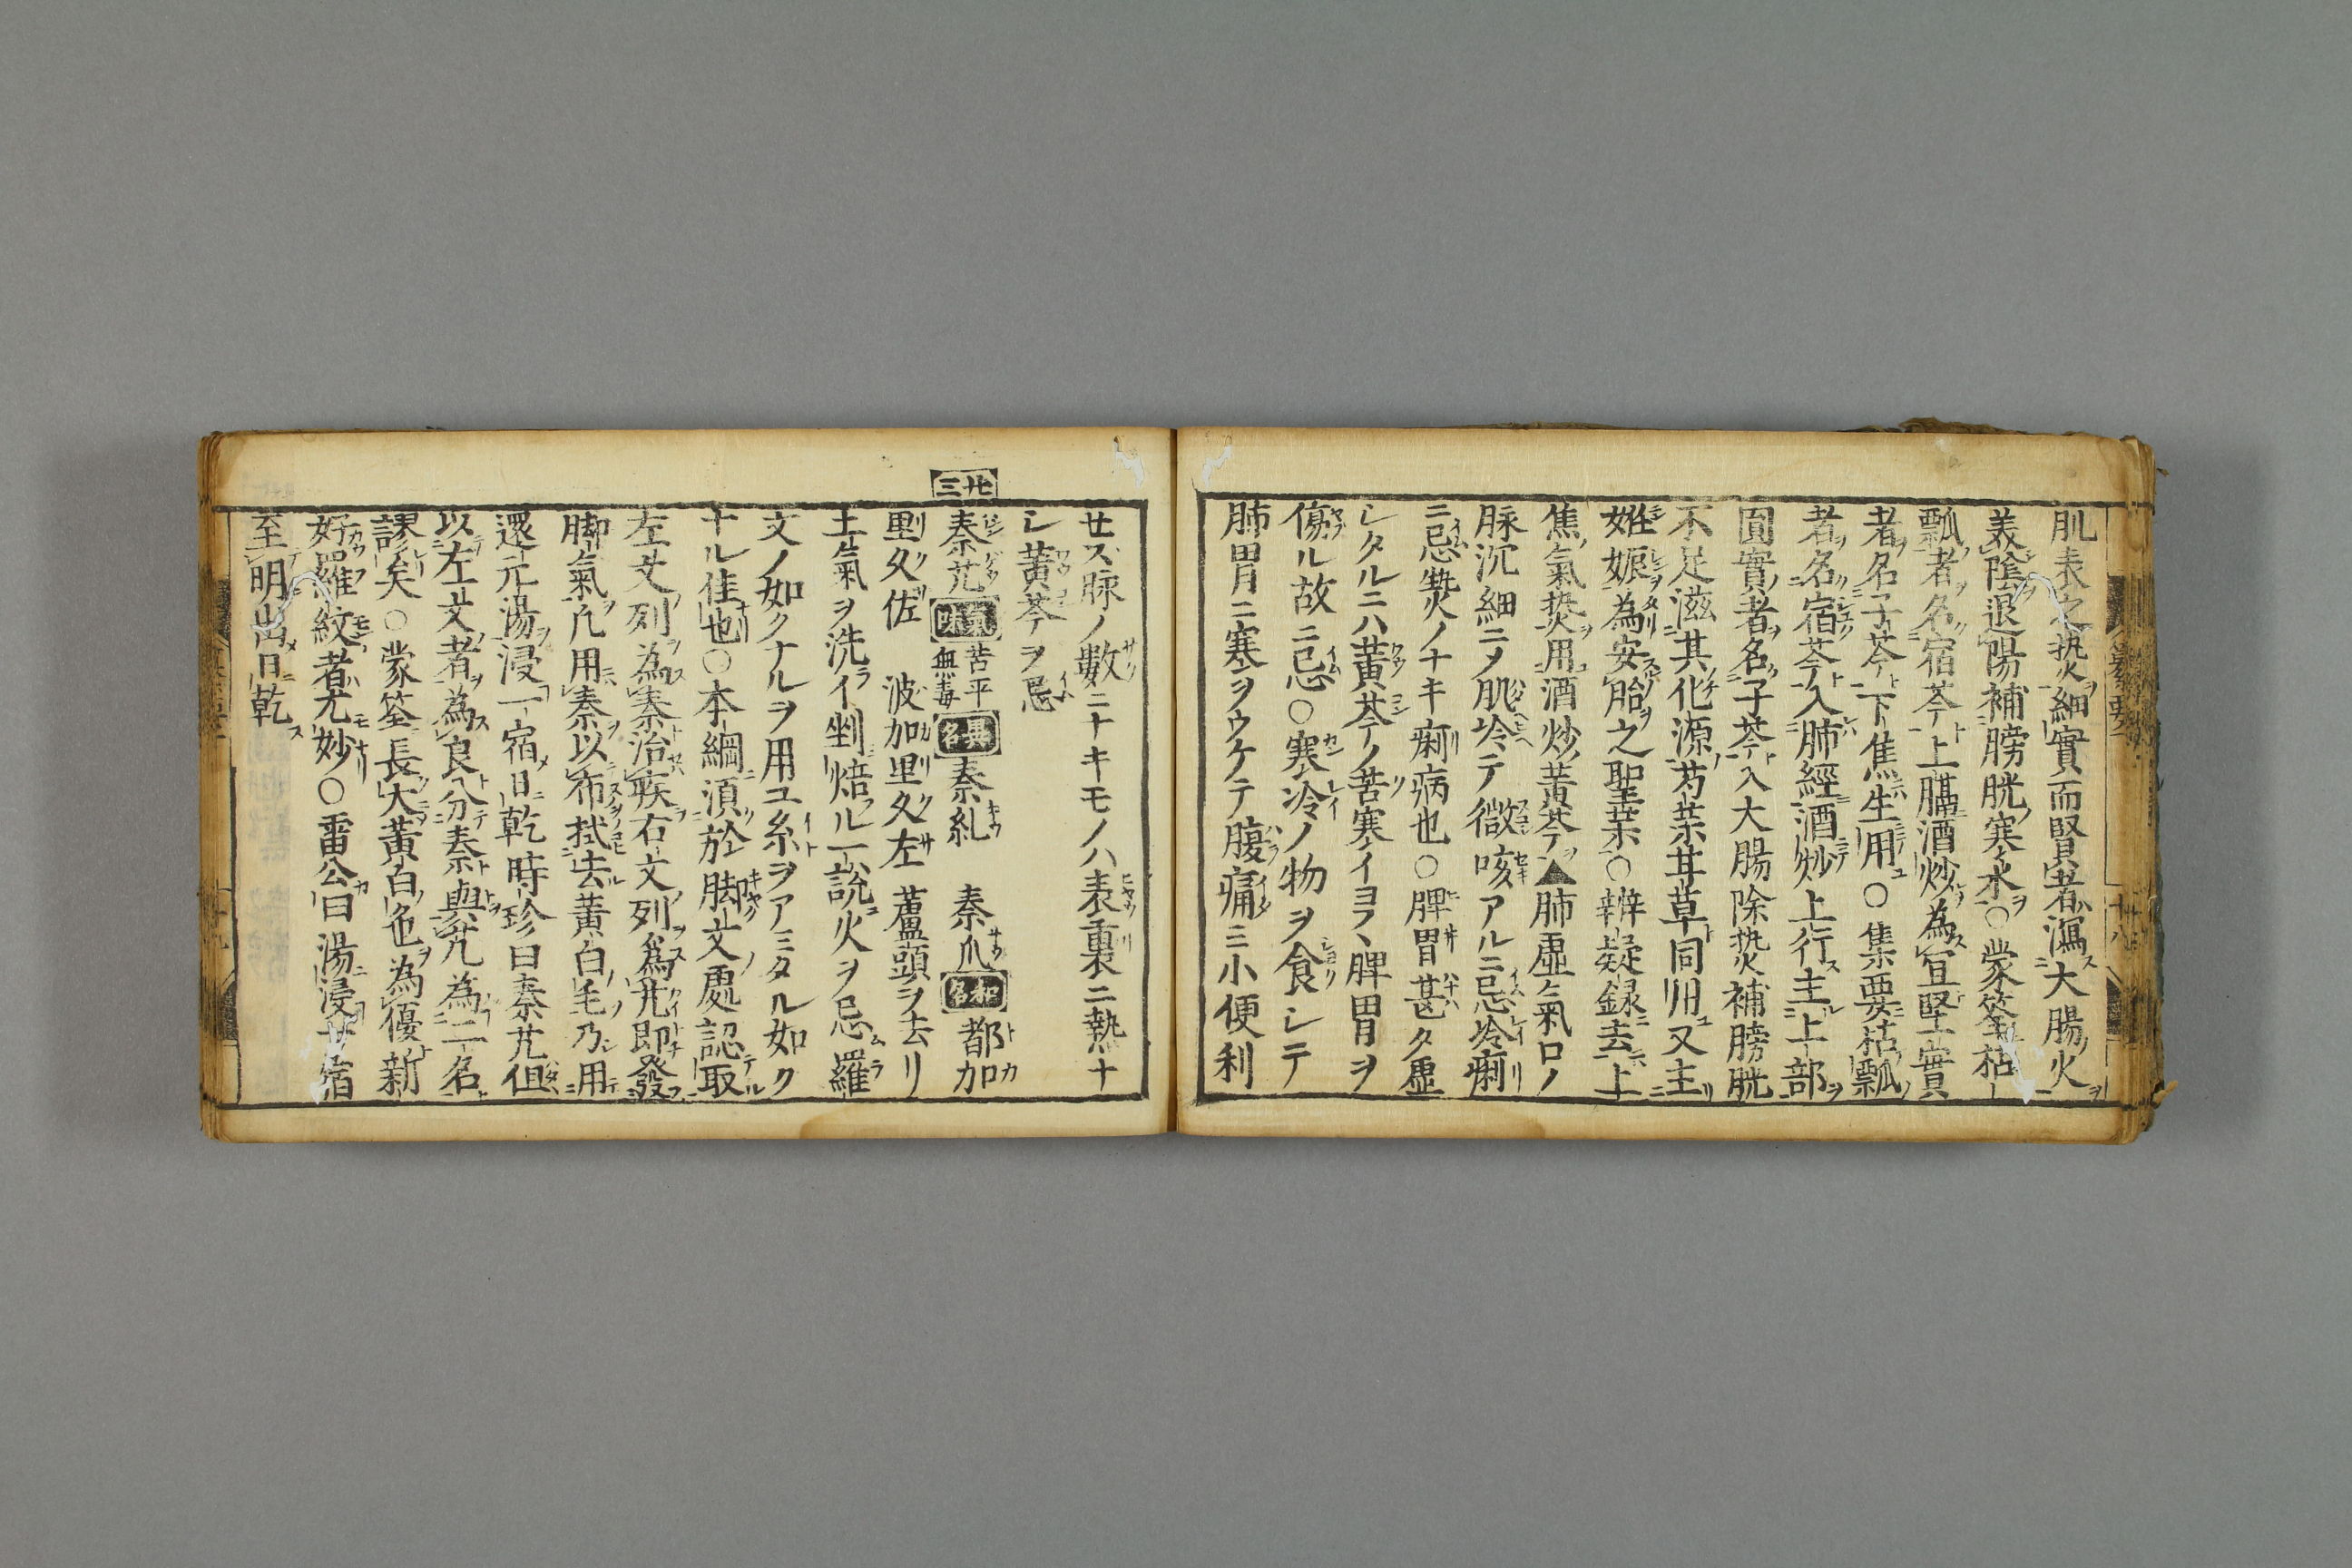 肌表之热細實而堅者瀉大腸火
養陰退陽補膀胱寒水○蒙筌枯
瓢者名宿芩上膈酒炒為宜堅實
者名子芩下焦生用○集要枯瓢
者名宿芩入肺經酒炒上行主上部
圓實者名子芩入大腸除热補膀胱
不足滋其化源芍藥甘草同用又主
姙娠為安胎之聖薬○辨疑録去上
焦氣热用酒炒黄芩▲肺虚氣口ノ
脉沉細ニメ肌冷テ微咳アルニ忌冷痢
ニ忌热ノナキ痢病也○脾胃甚タ虚
シタルニハ黄芩ノ苦寒イヨヽ脾胃ヲ
傷ル故ニ忌○寒冷ノ物ヲ食シテ
肺胃ニ寒ヲウケテ腹痛ミ小便利
せズ脉ノ數ニナキモノハ表裏ニ熱ナ
レ黄芩ヲ忌
廿三
秦艽 氣味 苦平無毒 異名 秦糺 秦爪 和名 都加
里久佐 波加里久左 蘆頭ヲ去リ
土氣ヲ洗イ剉焙ル一説火ヲ忌羅
文ノ如クナルヲ用ユ糸ヲアミタル如ク
ナル佳也○本綱湏於脚文處認取
左文列為秦治疾右文列為艽即發
脚氣凢用秦以布拭去黄白毛乃用
還元湯浸一宿日乾時珍曰秦艽但
以左文者為良分秦與艽為二名
謬矣○蒙筌長大黄白色為優新
好羅紋者尤妙○雷公曰湯浸一宿
至明出日乾